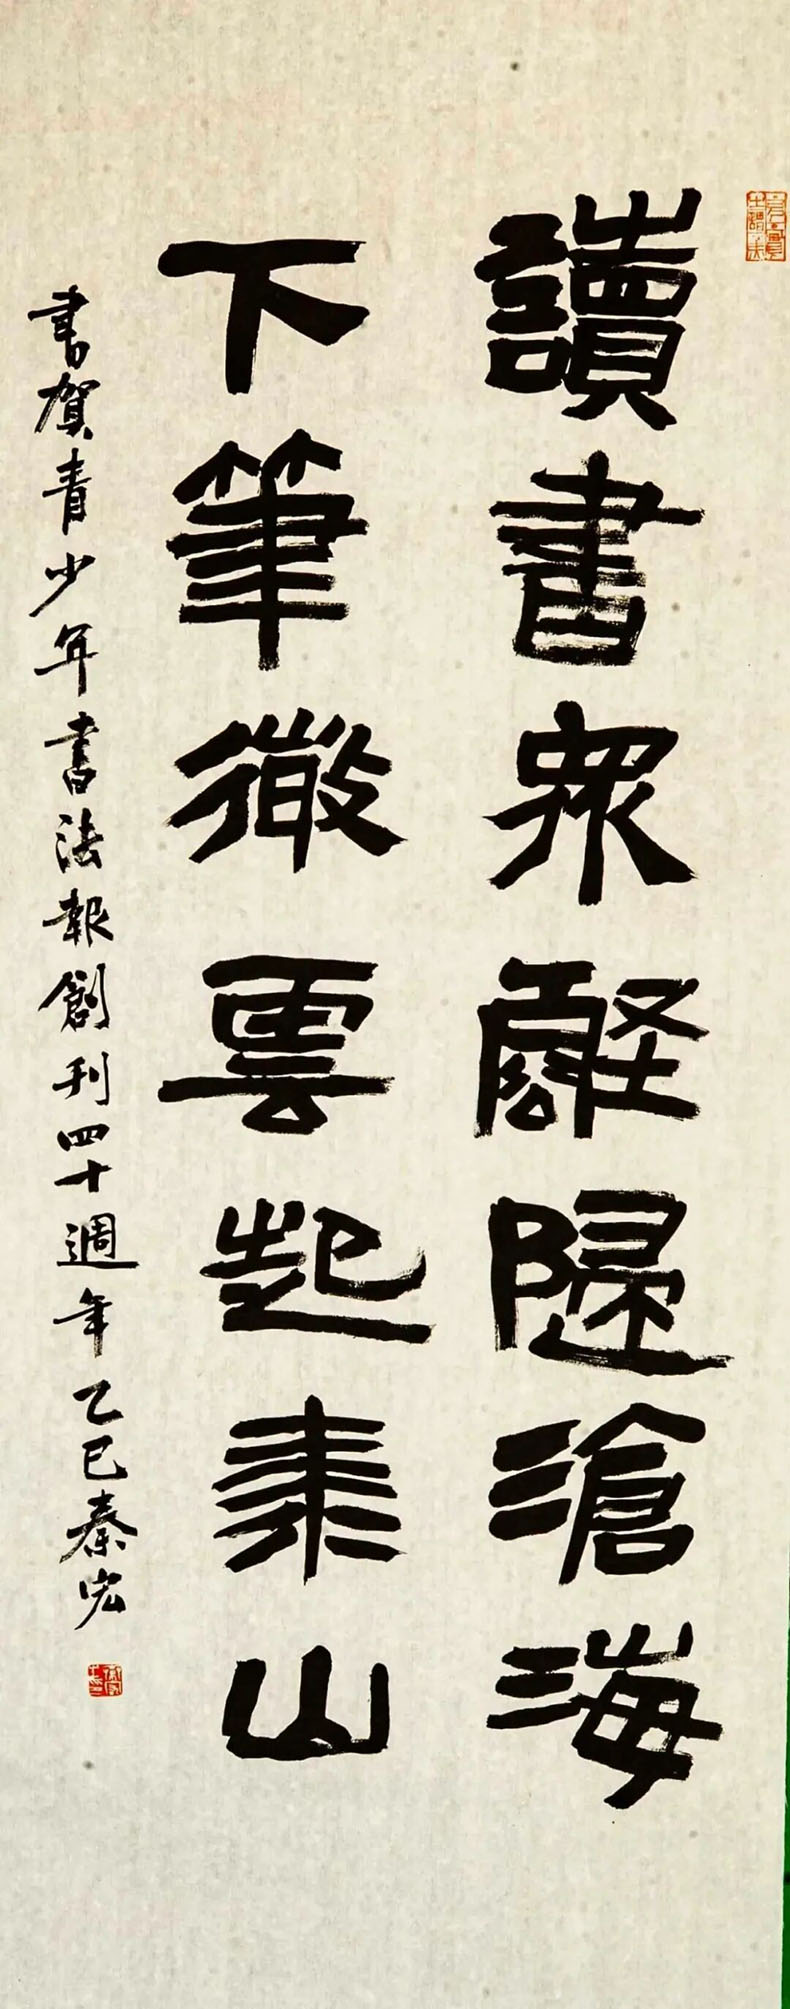 讀書眾壑歸滄海
下筆微雲起泰山
書賀青少年書法報創刊四十週年乙巳秦宏